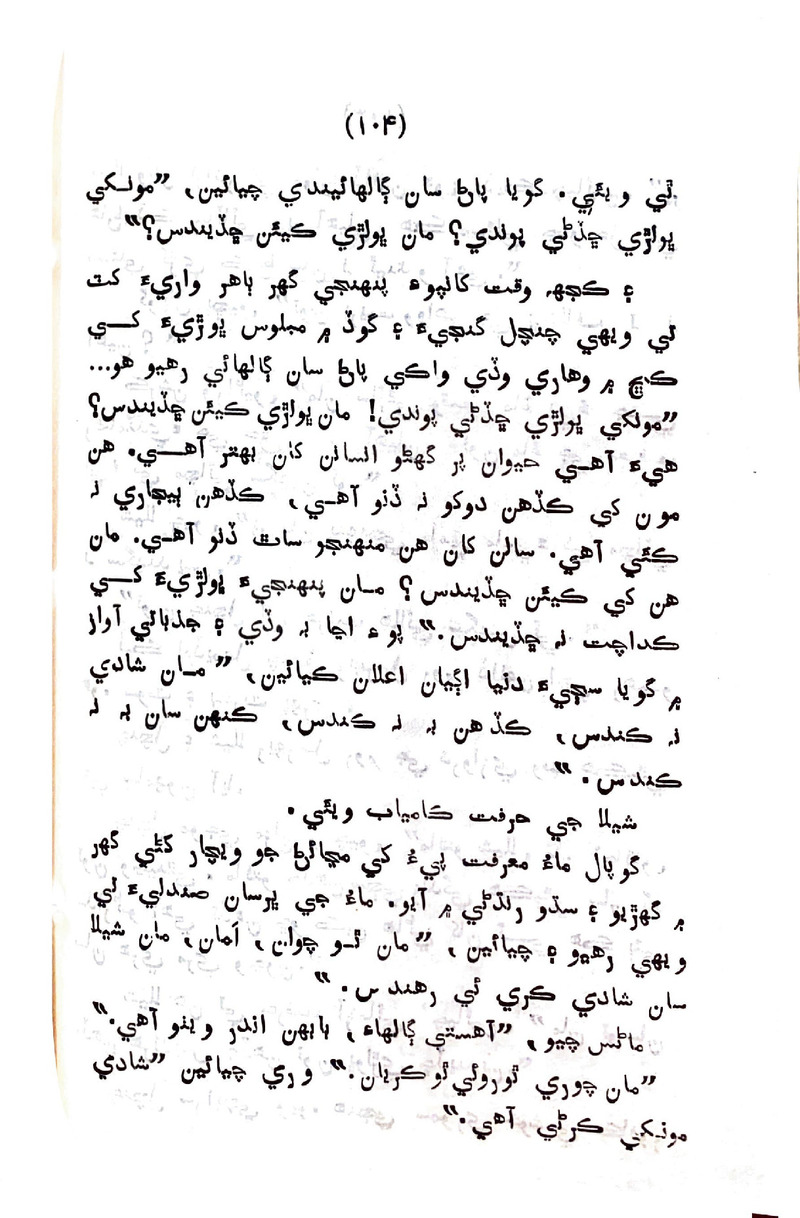 (۱۰۴)
ٿي ويئي. گويا پاڻ سان ڳالهائيندي چيائين، ”مونکي
ڀولڙي ڇڏڻي پوندي؟ مان ڀولڙي ڪيئن ڇڏيندس؟“
۽ ڪجهہ وقت کانپوءِ پنهنجي گهر ٻاهر واريءَ کٽ
تي ويهي چنچل گنجيءَ ۽ گوڏ ۾ مبلوس ڀولڙيءَ کي
ڪڇ ۾ وهاري وڏي واڪي پاڻ سان ڳالهائي رهيو هو...
”مونکي ڀولڙي ڇڏڻي پوندي! مان ڀولڙي ڪيئن ڇڏيندس؟
هيءَ آهي حيوان پر گهڻو انسانن کان بهتر آهي. هن
مون کي ڪڏهن دوکو نہ ڏنو آهي، ڪڏهن بيچاري نہ
ڪئي آهي. سالن کان هن منهنجو ساٿ ڏنو آهي. مان
هن کي ڪيئن ڇڏيندس؟ مان پنهنجيءَ ڀولڙيءَ کي
ڪداچت نہ ڇڏيندس.“ پوءِ اڃا بہ وڏي ۽ جذباتي آواز
۾ گويا سڄيءَ دنيا اڳيان اعلان ڪيائين، ”مان شادي
نہ ڪندس، ڪڏهن بہ نہ ڪندس، ڪنهن سان بہ نہ
ڪندس.“
شيلا جي حرفت ڪامياب ويئي.
گوپال ماءُ معرفت پيءُ کي مڃائڻ جو ويچار کڻي گهر
۾ گهڙيو ۽ سڌو رنڌڻي ۾ آيو. ماءُ جي ڀرسان صندليءَ تي
ويهي رهيو ۽ چيائين، ”مان ٿو چوان، اَمان، مان شيلا
سان شادي ڪري ئي رهندس.“
ماڻس چيو، ”آهستي ڳالهاءِ، ٻاٻهن اندر ويٺو آهي.“
”مان چوري ٿوروئي ٿو ڪريان.“ وري چيائين ”شادي
مونکي ڪرڻي آهي.“